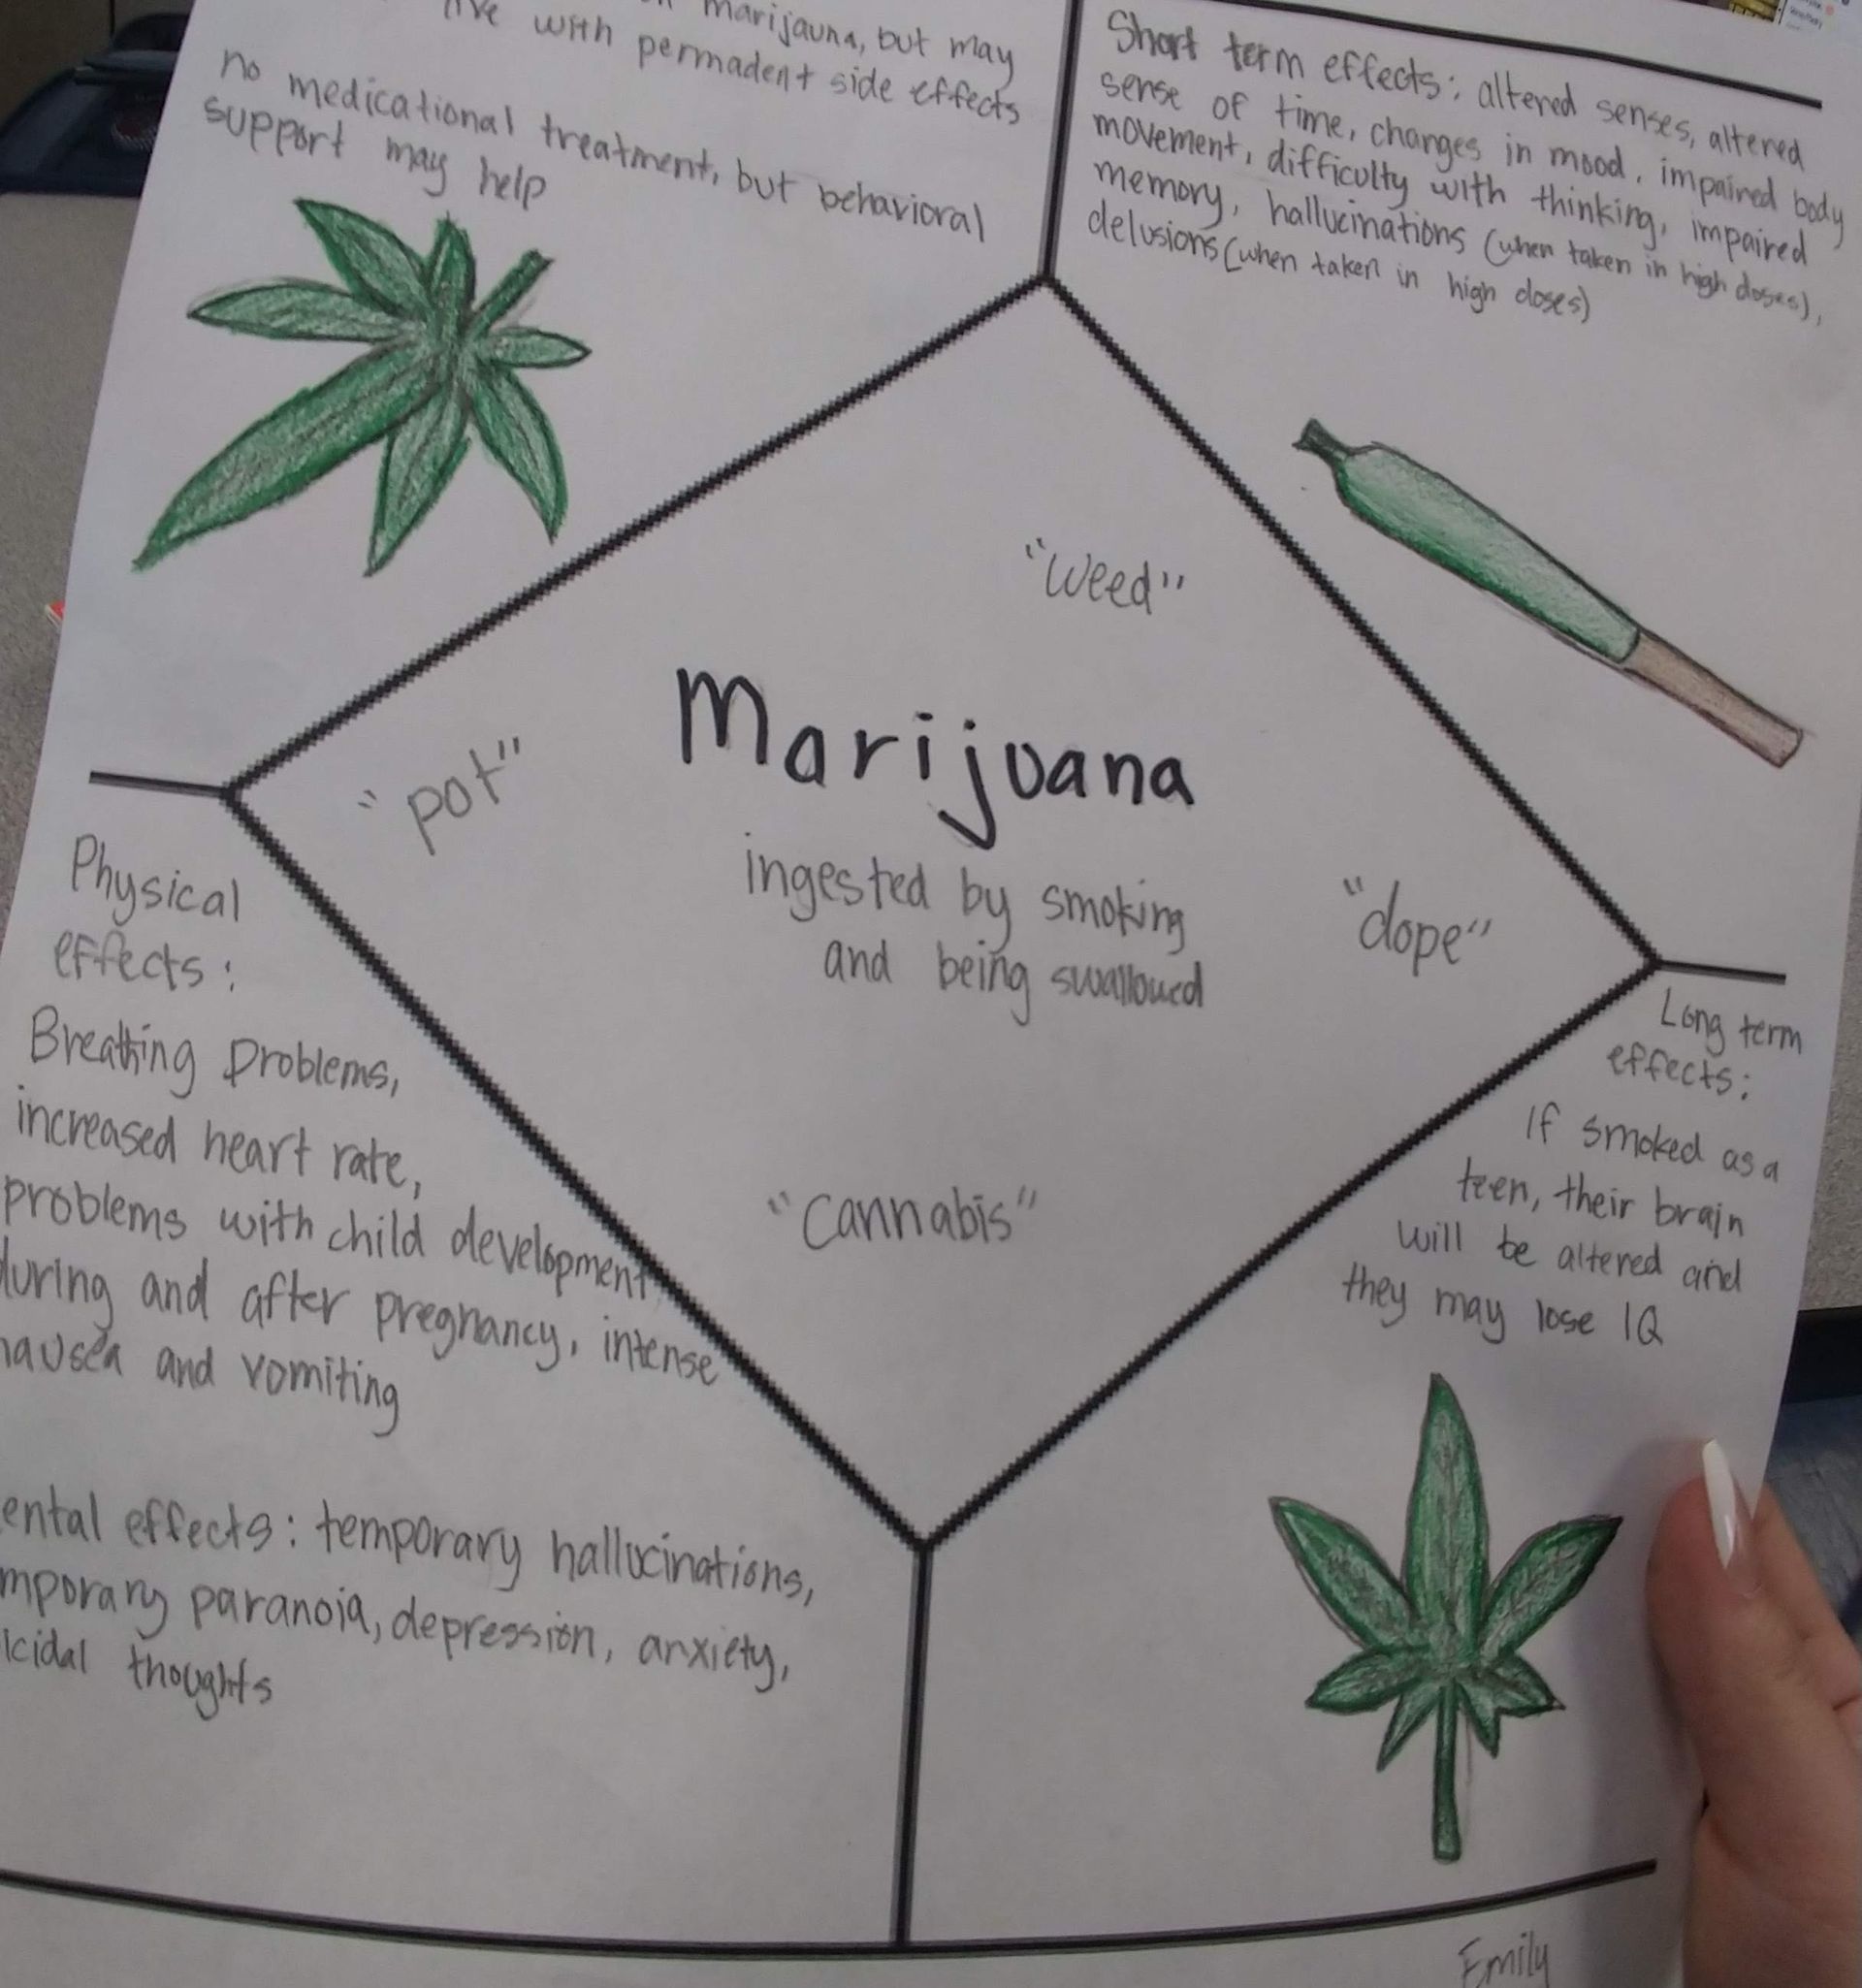 marijauna, but may
live with permadent side effects
no medicational treatment, but behavioral
support may help
Short term effects: altered senses, altered
sense of time, changes in mood, impaired body
movement, difficulty with thinking, impaired
memory, hallucinations (when taken in high doses),
delusions (when taken in high doses)
"Weed"
"pot"
Marijuana
ingested by smoking
and being swallowed
"dope"
"Cannabis"
Physical
effects:
Breathing problems,
increased heart rate,
problems with child development
during and after pregnancy, intense
nausea and vomiting
ental effects: temporary hallucinations,
mporary paranoia, depression, anxiety,
icidal thoughts
Long term
effects:
If smoked as a
teen, their brain
will be altered and
they may lose IQ
Emily